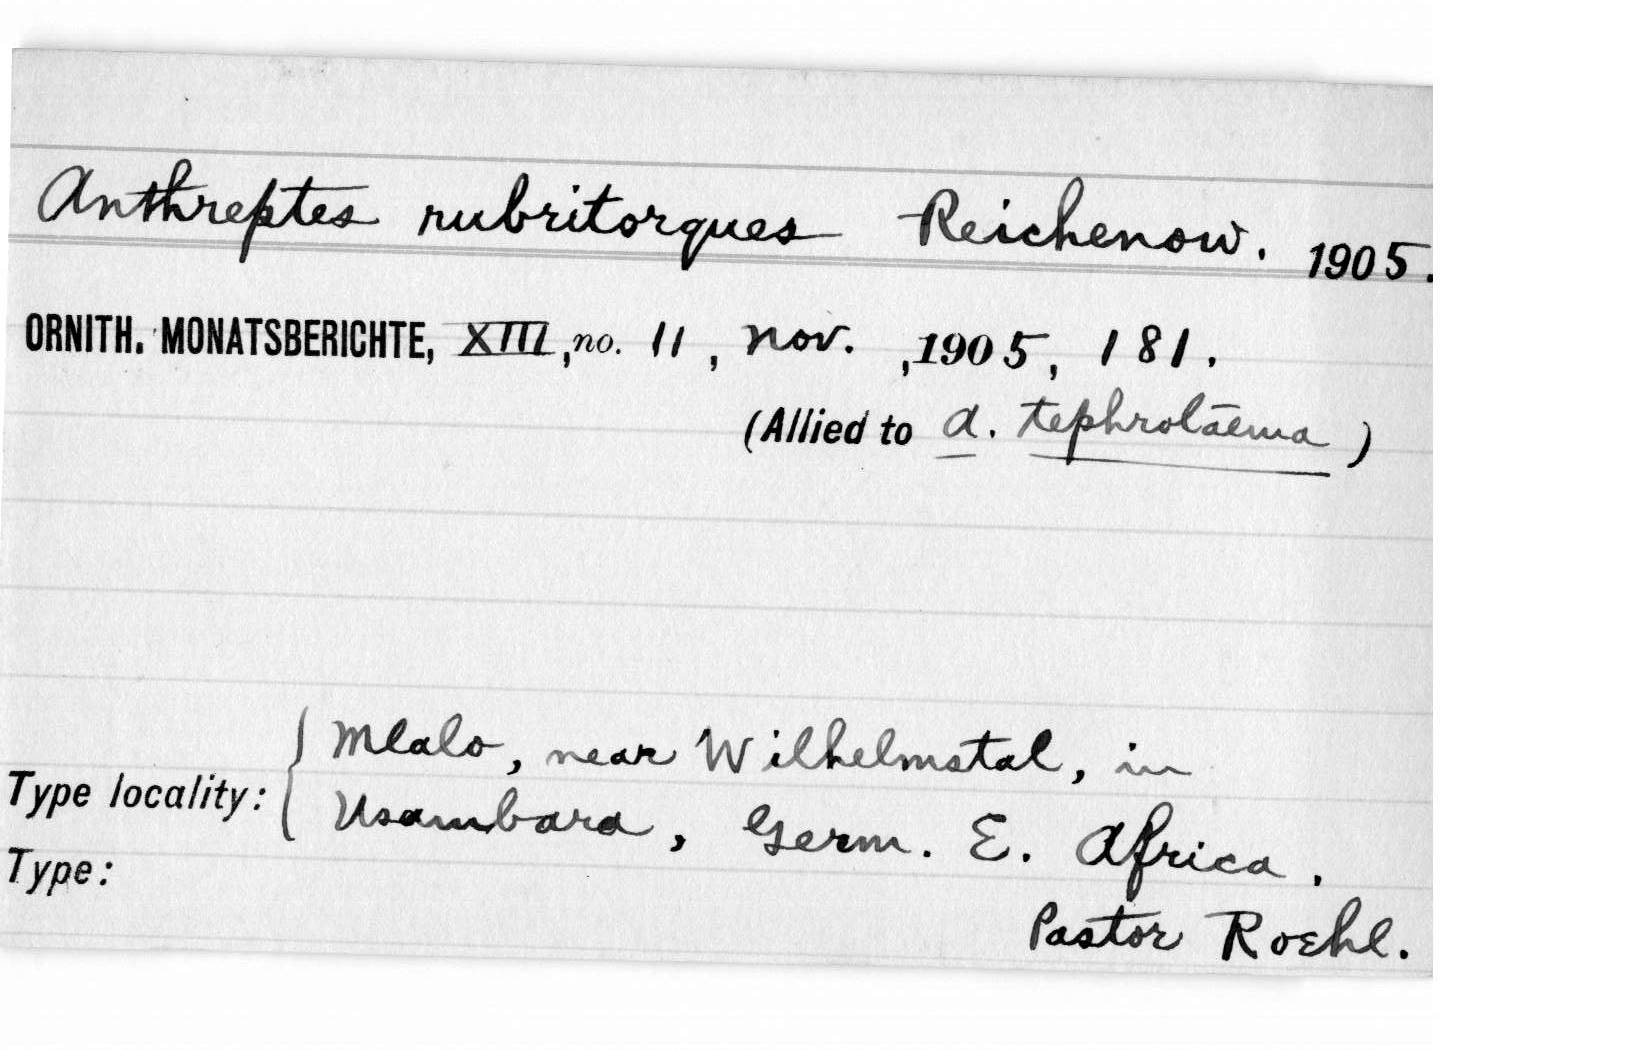 Anthreptes rubritorques Reichenow. 1905.
ORNITH. MONATSBERICHTE, XIII, no. 11, Nov., 1905, 181.
(Allied to A. tephrolaema)
Type locality: { Mlalo, near Wilhelmstal, in
Usambara, Germ. E. Africa.
Type:
Pastor Roehl.